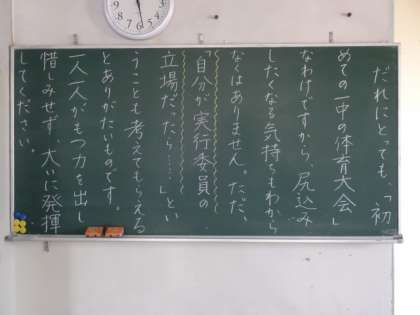 だれにとっても、「初
めての一中の体育大会」
なわけですから、尻込み
したくなる気持ちもわから
なくはありません。ただ、
「自分が実行委員の
立場だったら……」とい
うことも考えてもらえる
とありがたいものです。
一人一人がもつ力を出し
惜しみせず、大いに発揮
してください。